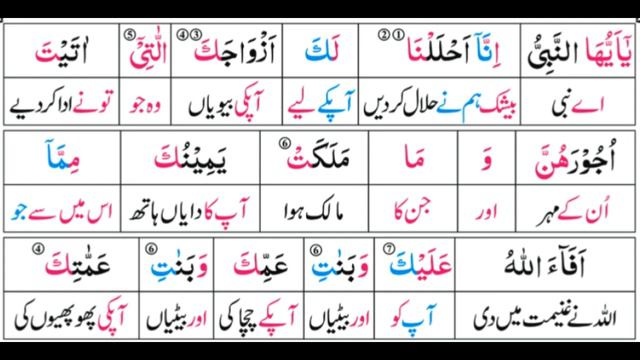 يٰۤاَيُّهَا النَّبِيُّ اِنَّاۤ اَحْلَلْنَا ①② لَكَ اَزْوَاجَكَ ③④ الّٰتِيْۤ ⑤ اٰتَيْتَ
اے نبی بیشک ہم نے حلال کر دیں آپکے لیے آپکی بیویاں وہ جو تو نے ادا کر دیے
اُجُوْرَهُنَّ وَ مَا مَلَكَتْ ⑥ يَمِيْنُكَ مِمَّاۤ
اُن کے مہر اور جن کا مالک ہوا آپ کا دایاں ہاتھ اس میں سے جو
اَفَآءَ اللّٰهُ عَلَيْكَ ⑦ وَبَنٰتِ ⑥ عَمِّكَ وَبَنٰتِ ⑥ عَمّٰتِكَ ④
اللہ نے غنیمت میں دی آپ کو اور بیٹیاں آپکے چچا کی اور بیٹیاں آپکی پھوپھیوں کی